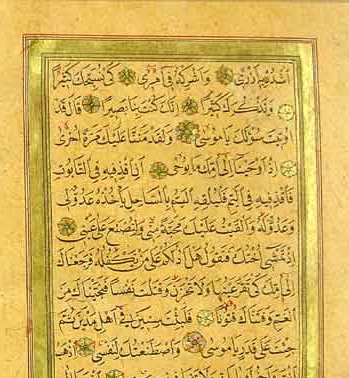 اُشْدُدْ بِهِ اَزْرِي وَاَشْرِكْهُ فِي اَمْرِي كَيْ نُسَبِّحَكَ كَثِيرًا
وَنَذْكُرَكَ كَثِيرًا اِنَّكَ كُنْتَ بِنَا بَصِيرًا قَالَ قَدْ
اُوتِيتَ سُؤْلَكَ يَا مُوسٰى وَلَقَدْ مَنَنَّا عَلَيْكَ مَرَّةً اُخْرٰى
اِذْ اَوْحَيْنَا اِلٰى اُمِّكَ مَا يُوحٰى اَنِ اقْذِفِيهِ فِي التَّابُوتِ
فَاقْذِفِيهِ فِي الْيَمِّ فَلْيُلْقِهِ الْيَمُّ بِالسَّاحِلِ يَاْخُذْهُ عَدُوٌّ لِي
وَعَدُوٌّ لَهُ وَاَلْقَيْتُ عَلَيْكَ مَحَبَّةً مِنِّي وَلِتُصْنَعَ عَلٰى عَيْنِي
اِذْ تَمْشِي اُخْتُكَ فَتَقُولُ هَلْ اَدُلُّكُمْ عَلٰى مَنْ يَكْفُلُهُ فَرَجَعْنَاكَ
اِلٰى اُمِّكَ كَيْ تَقَرَّ عَيْنُهَا وَلَا تَحْزَنَ وَقَتَلْتَ نَفْسًا فَنَجَّيْنَاكَ مِنَ
الْغَمِّ وَفَتَنَّاكَ فُتُونًا فَلَبِثْتَ سِنِينَ فِي اَهْلِ مَدْيَنَ ثُمَّ
جِئْتَ عَلٰى قَدَرٍ يَا مُوسٰى وَاصْطَنَعْتُكَ لِنَفْسِي اِذْهَبْ